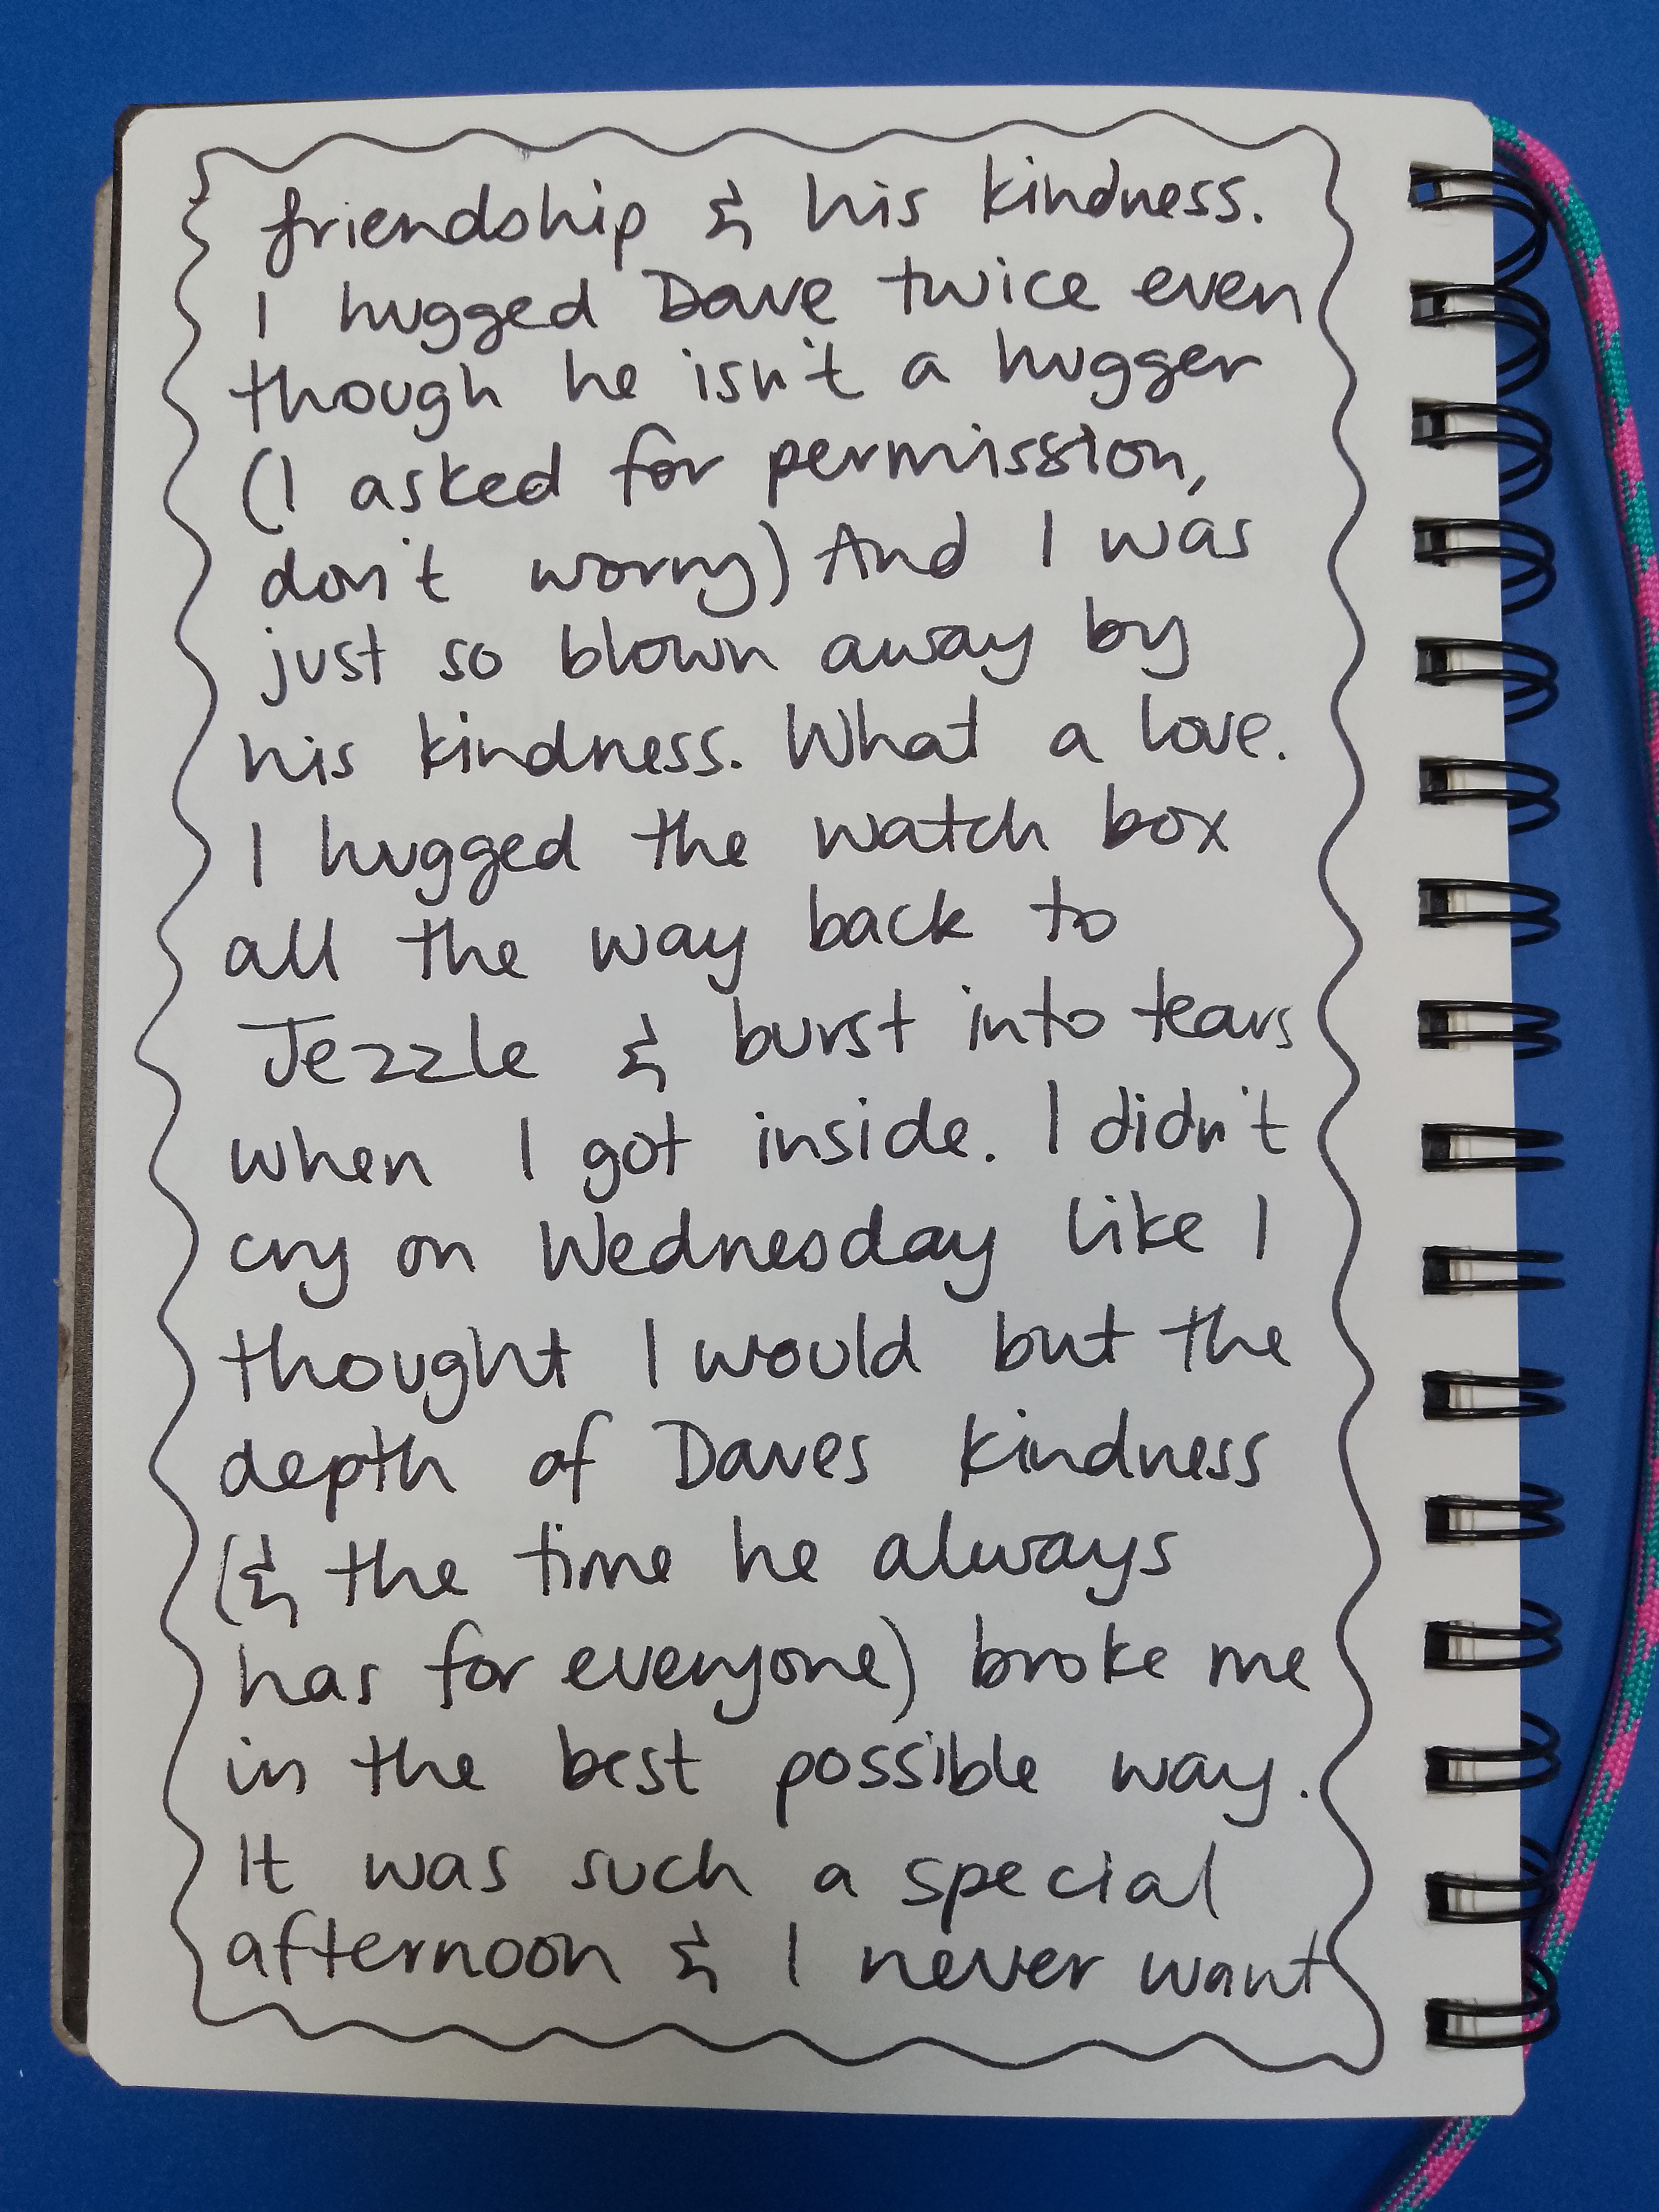 friendship & his kindness.
I hugged Dave twice even
though he isn't a hugger
(I asked for permission,
don't worry) And I was
just so blown away by
his kindness. What a love.
I hugged the watch box
all the way back to
Jezzle & burst into tears
when I got inside. I didn't
cry on Wednesday like I
thought I would but the
depth of Daves kindness
(& the time he always
has for everyone) broke me
in the best possible way.
It was such a special
afternoon & I never want